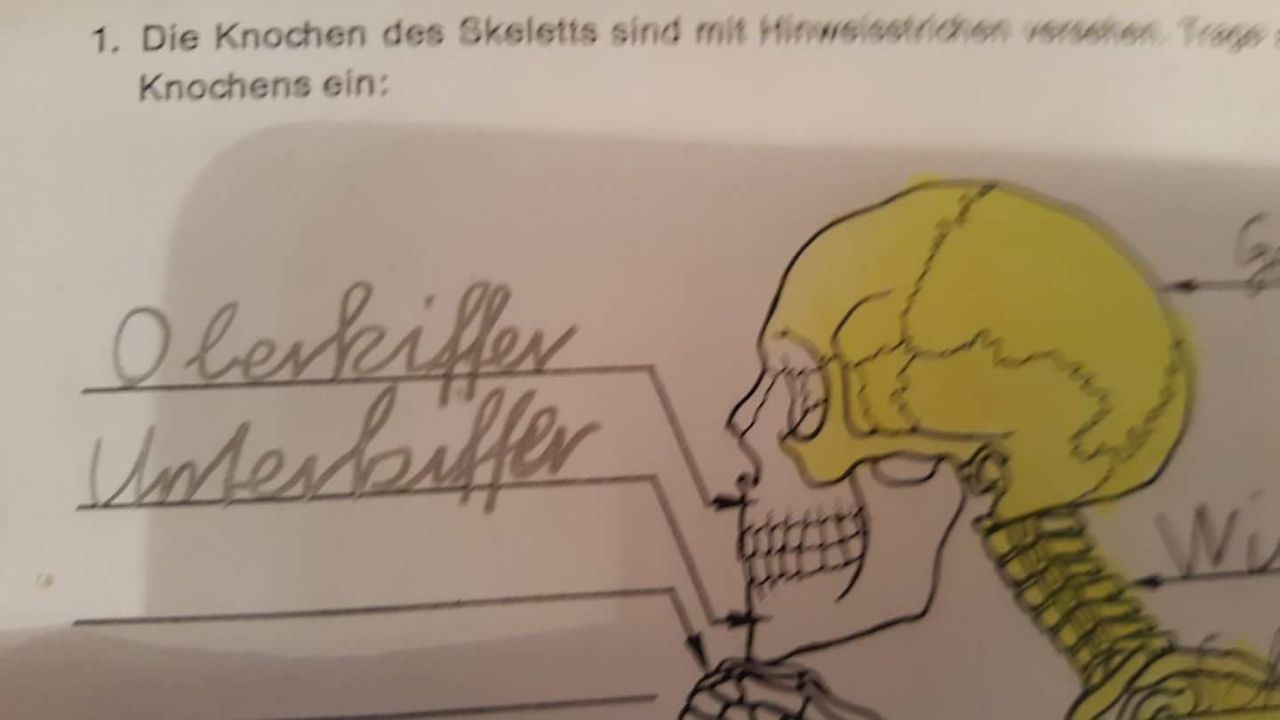 1. Die Knochen des Skeletts sind mit Hinweisstrichen versehen. Trage
Knochens ein:
Oberkiffer
Unterkiffer